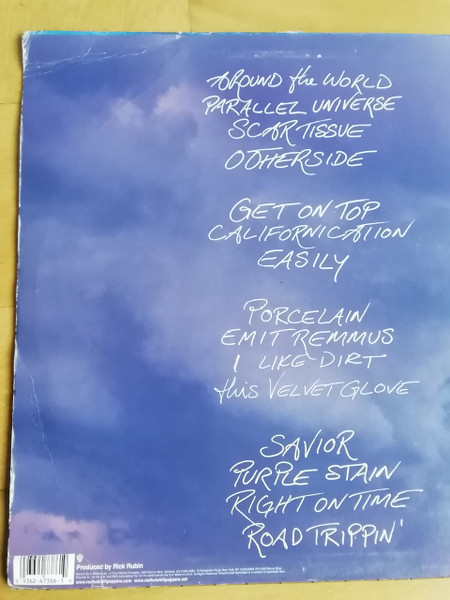 AROUND the WORLD
PARALLEL UNIVERSE
SCAR TISSUE
OTHERSIDE
GET ON TOP
CALIFORNICATION
EASILY
PORCELAIN
EMIT REMMUS
I LIKE DIRT
this VELVET GLOVE
SAVIOR
PURPLE STAIN
RIGHT ON TIME
ROAD TRIPPIN'
Produced by Rick Rubin